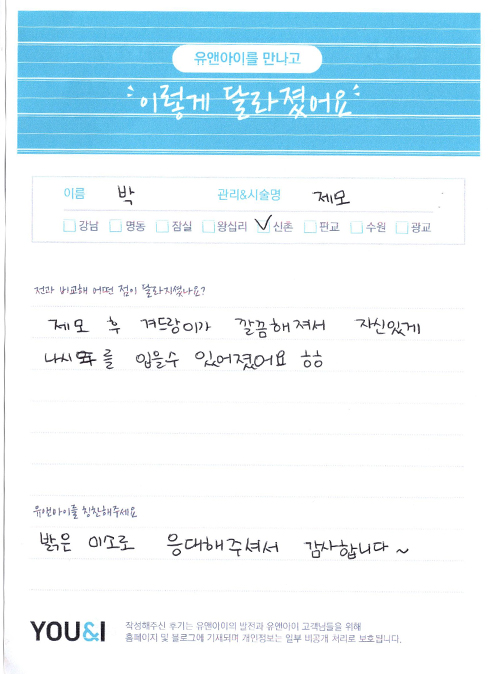 유앤아이를 만나고
이렇게 달라졌어요
이름 박 관리&시술명 제모
강남 명동 잠실 왕십리 신촌 판교 수원 광교
전과 비교해 어떤 점이 달라지셨나요?
제모 후 겨드랑이가 깔끔해져서 자신있게
나시 를 입을수 있어졌어요 ㅎㅎ
유앤아이를 칭찬해주세요
밝은 미소로 응대해주셔서 감사합니다~
YOU&I 작성해주신 후기는 유앤아이의 발전과 유앤아이 고객님들을 위해
홈페이지 및 블로그에 기재되며 개인정보는 일부 비공개 처리로 보호됩니다.